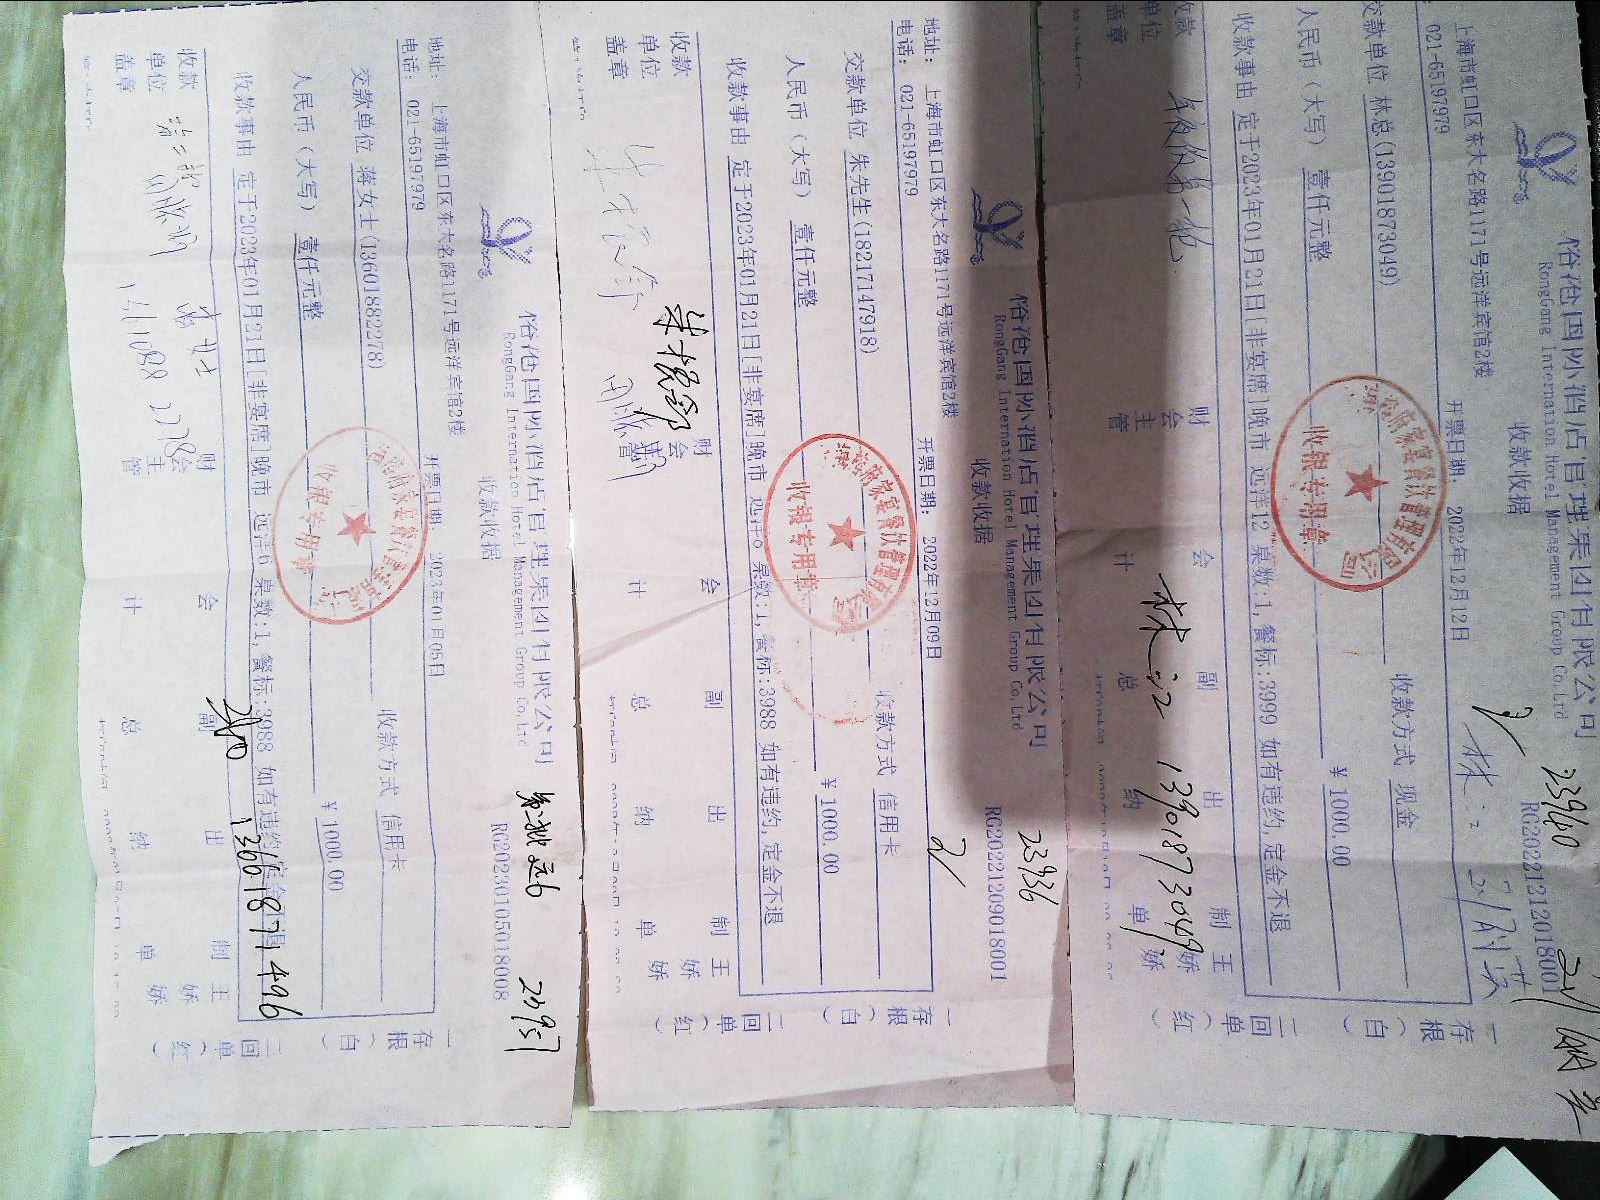 俗沧国际酒店管理集团有限公司
RongGang Internation Hotel Management Group Co.Ltd
收款收据
23960
RG202212120180001
上海市虹口区东大名路1171号远洋宾馆2楼
021-65197979
开票日期: 2022年12月12日
交款单位 林总(13901873049)
收款方式 现金
人民币（大写） 壹仟元整
¥1000.00
收款事由 定于2023年01月21日[非宴席]晚市 远洋12 桌数:1,餐标:3999 如有违约,定金不退
收银专用章
收款单位盖章
财会主管
会计
副总
出纳
制单
王娇娇
13901873049
一存根（白）
二回单（红）
俗沧国际酒店管理集团有限公司
RongGang Internation Hotel Management Group Co.Ltd
收款收据
23936
RG20221209018001
地址: 上海市虹口区东大名路1171号远洋宾馆2楼
电话: 021-65197979
开票日期: 2022年12月09日
交款单位 朱先生(18217147918)
收款方式 信用卡
人民币（大写） 壹仟元整
¥1000.00
收款事由 定于2023年01月21日[非宴席]晚市 远洋9 桌数:1,餐标:3988 如有违约,定金不退
收银专用章
收款单位盖章
财会主管
会计
副总
出纳
制单
王娇娇
一存根（白）
二回单（红）
俗沧国际酒店管理集团有限公司
RongGang Internation Hotel Management Group Co.Ltd
收款收据
RG20230105018008
地址: 上海市虹口区东大名路1171号远洋宾馆2楼
电话: 021-65197979
开票日期: 2023年01月05日
交款单位 蒋女士(13601882278)
收款方式 信用卡
人民币（大写） 壹仟元整
¥1000.00
收款事由 定于2023年01月21日[非宴席]晚市 远洋6 桌数:1,餐标:3988 如有违约,定金不退
收银专用章
收款单位盖章
财会主管
会计
副总
出纳
制单
王娇娇
13661871496
一存根（白）
二回单（红）